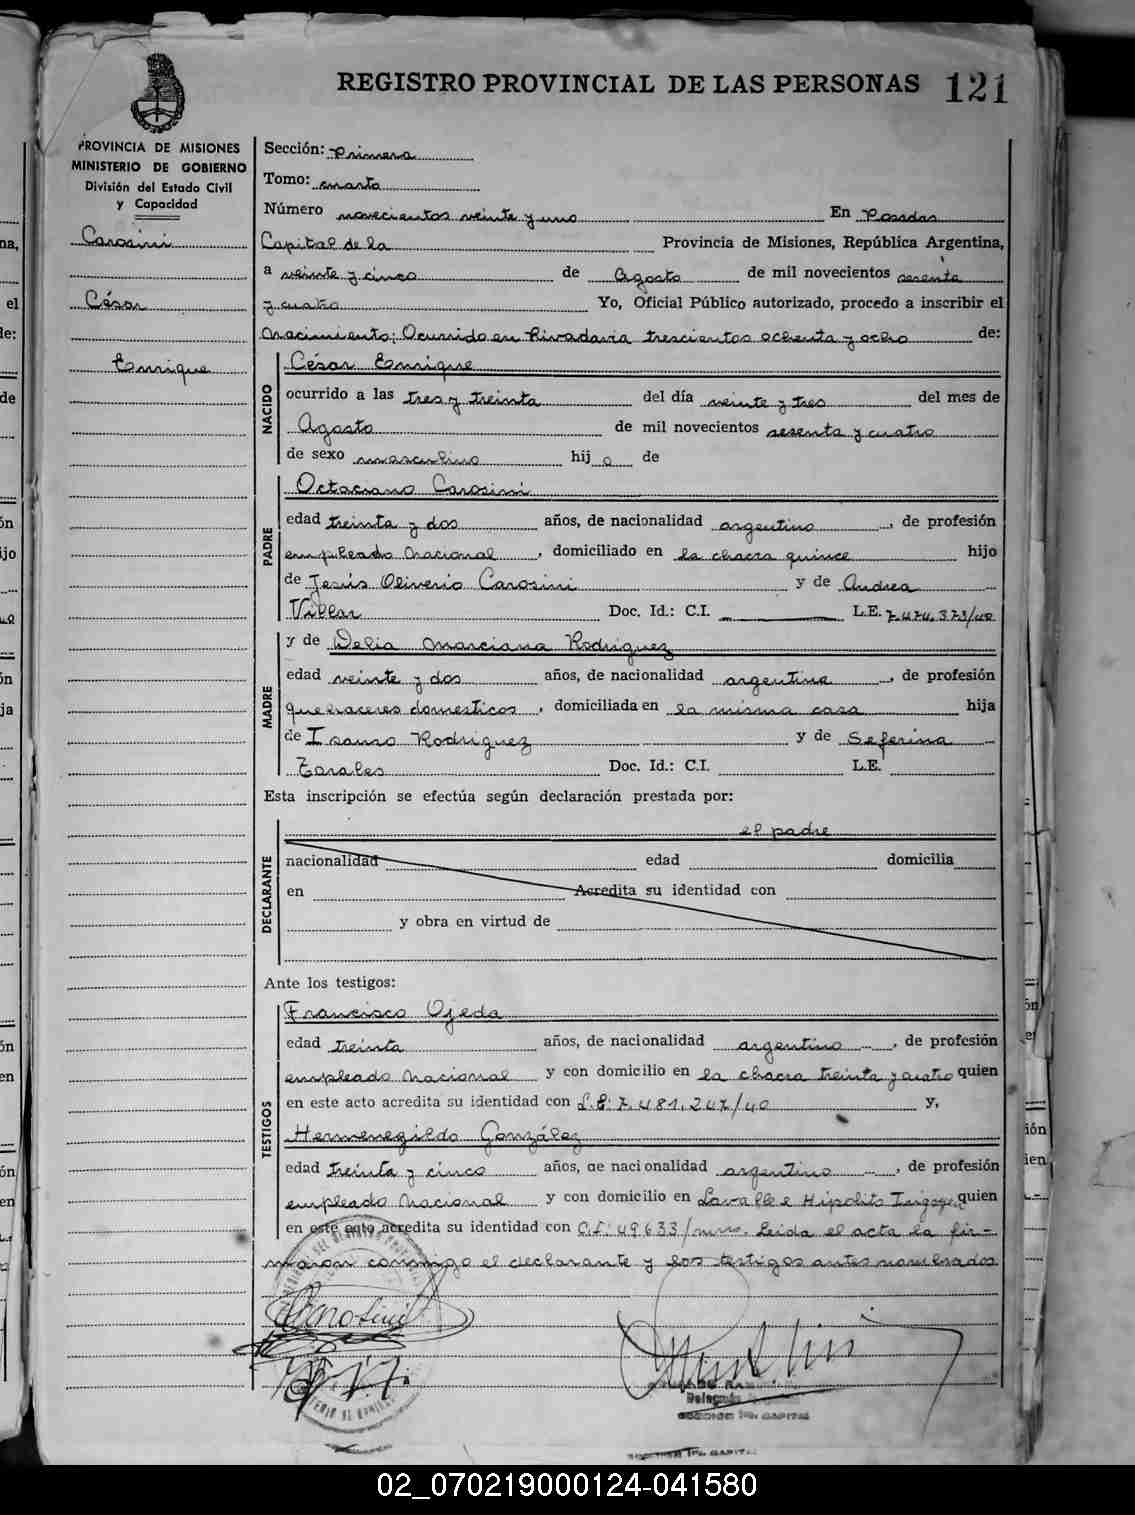 REGISTRO PROVINCIAL DE LAS PERSONAS 121
PROVINCIA DE MISIONES
MINISTERIO DE GOBIERNO
División del Estado Civil
y Capacidad
Carosini
César
Enrique
Sección: Primera
Tomo: cuarto
Número novecientos veinte y uno En Posadas
Capital de la Provincia de Misiones, República Argentina,
a veinte y cinco de Agosto de mil novecientos sesenta
y cuatro Yo, Oficial Público autorizado, procedo a inscribir el
Nacimiento; Ocurrido en Rivadavia trescientos ochenta y ocho de:
NACIDO
César Enrique
ocurrido a las tres y treinta del día veinte y tres del mes de
Agosto de mil novecientos sesenta y cuatro
de sexo masculino hijo de
PADRE
Octaciano Carosini
edad treinta y dos años, de nacionalidad argentino, de profesión
empleado Nacional, domiciliado en la chacra quince hijo
de Jesús Oliverio Carosini y de Andrea
Villar Doc. Id.: C.I. L.E. 7.474.373/40
MADRE
y de Delia Marciana Rodriguez
edad veinte y dos años, de nacionalidad argentina, de profesión
quehaceres domesticos, domiciliada en la misma casa hija
de Isauro Rodriguez y de Seferina
Zarales Doc. Id.: C.I. L.E.
Esta inscripción se efectúa según declaración prestada por:
DECLARANTE
el padre
nacionalidad edad domicilia
en Acredita su identidad con
y obra en virtud de
Ante los testigos:
TESTIGOS
Francisco Ojeda
edad treinta años, de nacionalidad argentino, de profesión
empleado Nacional y con domicilio en la chacra treinta y cuatro quien
en este acto acredita su identidad con L.E: 7.481.247/40 y,
Hermenegildo González
edad treinta y cinco años, de nacionalidad argentino, de profesión
empleado Nacional y con domicilio en Lavalle e Hipolito Irigoyen quien
en este acto acredita su identidad con C.I: 49633/mnes. Leida el acta la fir-
maron conmigo el declarante y los testigos antes nombrados
Carosini
02_070219000124-041580